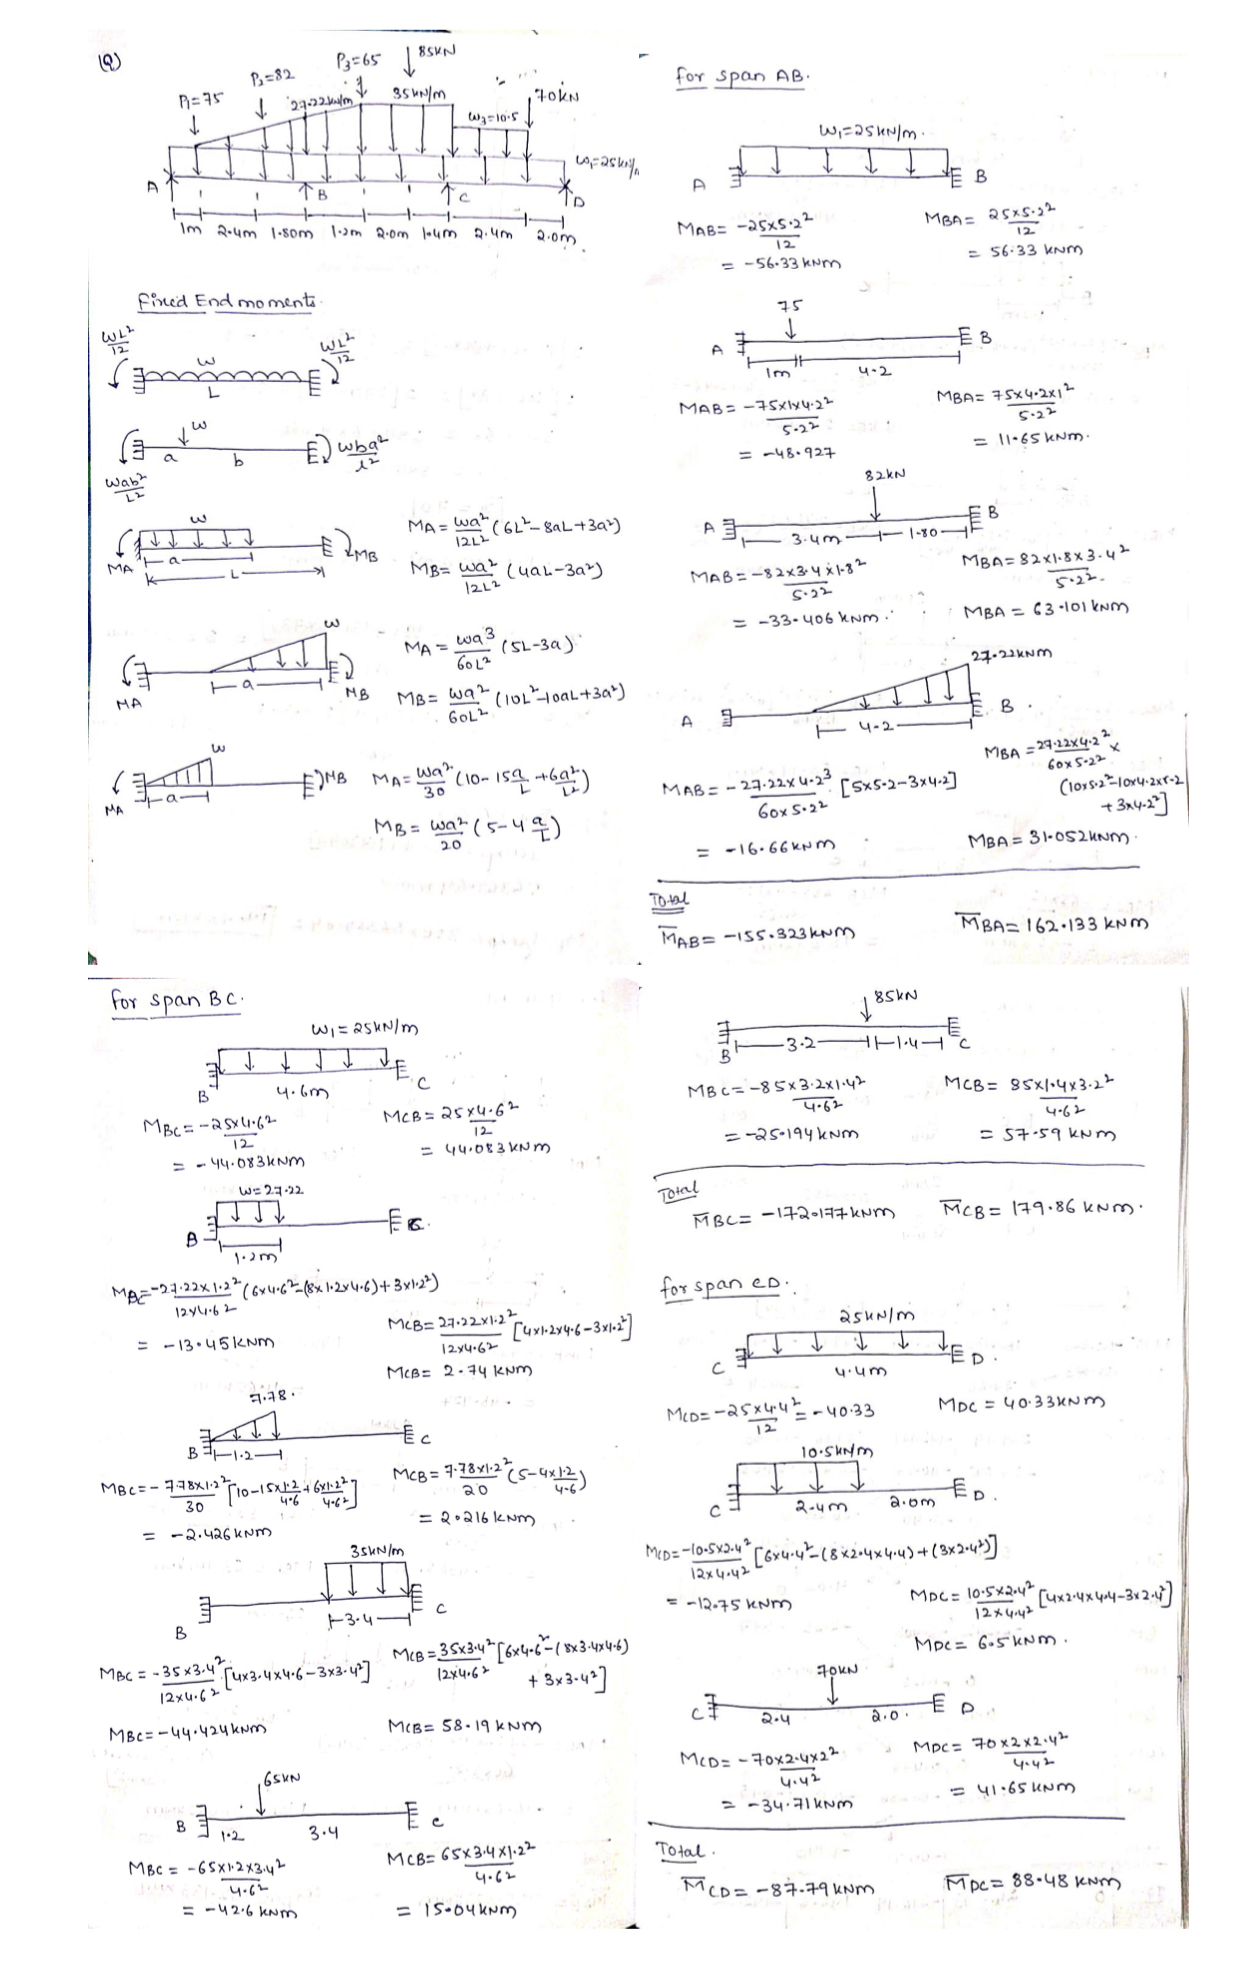 (Q)
P1=75
P2=82
27.22kN/m
P3=65
85kN
35kN/m
W3=10.5
70kN
W1=25kN/m
A
B
C
D
1m 2.4m 1.80m 1.2m 2.0m 1.4m 2.4m 2.0m
Fixed End moments.
WL²/12
W
L
WL²/12
W
a b
Wab²/L²
Wba²/L²
W
MA
a
L
MB
MA = Wa²/12L² (6L²-8aL+3a²)
MB= Wa²/12L² (4aL-3a²)
W
MA
a
MB
MA = Wa³/60L² (5L-3a)
MB= Wa²/60L² (10L²-10aL+3a²)
W
MA
a
MB
MA= Wa²/30 (10-15a/L+6a²/L²)
MB= Wa²/20 (5-4a/L)
for span AB.
W1=25kN/m.
A B
MAB= -25x5.2²/12
= -56.33 kNm
MBA= 25x5.2²/12
= 56.33 kNm
75
A B
1m 4.2
MAB= -75x1x4.2²/5.2²
= -48.927
MBA= 75x4.2x1²/5.2²
= 11.65 kNm.
82kN
A B
3.4m 1.80
MAB= -82x3.4x1.8²/5.2²
= -33.406 kNm.
MBA= 82x1.8x3.4²/5.2².
MBA = 63.101 kNm
27.22kNm
A B.
4.2
MAB= -27.22x4.2³/60x5.2² [5x5.2-3x4.2]
= -16.66 kNm
MBA = 27.22x4.2²/60x5.2² x
(10x5.2²-10x4.2x5.2
+3x4.2²]
MBA= 31.052kNm.
Total
M̅AB= -155.323kNm
M̅BA= 162.133 kNm
for span BC.
W1= 25kN/m
B C
4.6m
MBC= -25x4.6²/12
= -44.083kNm
MCB= 25x4.6²/12
= 44.083 kNm
W=27.22
B C.
1.2m
MBC= -27.22x1.2²/12x4.6² (6x4.6²-(8x1.2x4.6)+3x1.2²)
= -13.45 kNm
MCB= 27.22x1.2²/12x4.6² [4x1.2x4.6-3x1.2²]
MCB= 2.74 kNm
7.78.
B C
1.2
MBC= -7.78x1.2²/30 [10-15x1.2/4.6+6x1.2²/4.6²]
= -2.426 kNm
MCB= 7.78x1.2²/20 (5-4x1.2/4.6)
= 2.216 kNm
35kN/m
B C
3.4
MBC = -35x3.4²/12x4.6² [4x3.4x4.6-3x3.4²]
MBC= -44.424 kNm
MCB = 35x3.4²/12x4.6² [6x4.6²-(8x3.4x4.6)
+ 3x3.4²]
MCB= 58.19 kNm
65kN
B C
1.2 3.4
MBC = -65x1.2x3.4²/4.6²
= -42.6 kNm
MCB= 65x3.4x1.2²/4.6²
= 15.04 kNm
85kN
B C
3.2 1.4
MBC= -85x3.2x1.4²/4.6²
= -25.194 kNm
MCB= 85x1.4x3.2²/4.6²
= 57.59 kNm
Total
M̅BC= -172.177kNm
M̅CB= 179.86 kNm.
for span CD.
25kN/m
C D.
4.4m
MCD= -25x4.4²/12 = -40.33
MDC = 40.33kNm
10.5kN/m
C D.
2.4m 2.0m
MCD= -10.5x2.4²/12x4.4² [6x4.4²-(8x2.4x4.4)+(3x2.4²)]
= -12.75 kNm
MDC= 10.5x2.4²/12x4.4² [4x2.4x4.4-3x2.4²]
MDC= 6.5 kNm.
70kN
C D
2.4 2.0.
MCD= -70x2.4x2²/4.4²
= -34.71kNm
MDC= 70x2x2.4²/4.4²
= 41.65 kNm
Total.
M̅CD= -87.79 kNm
M̅DC= 88.48 kNm